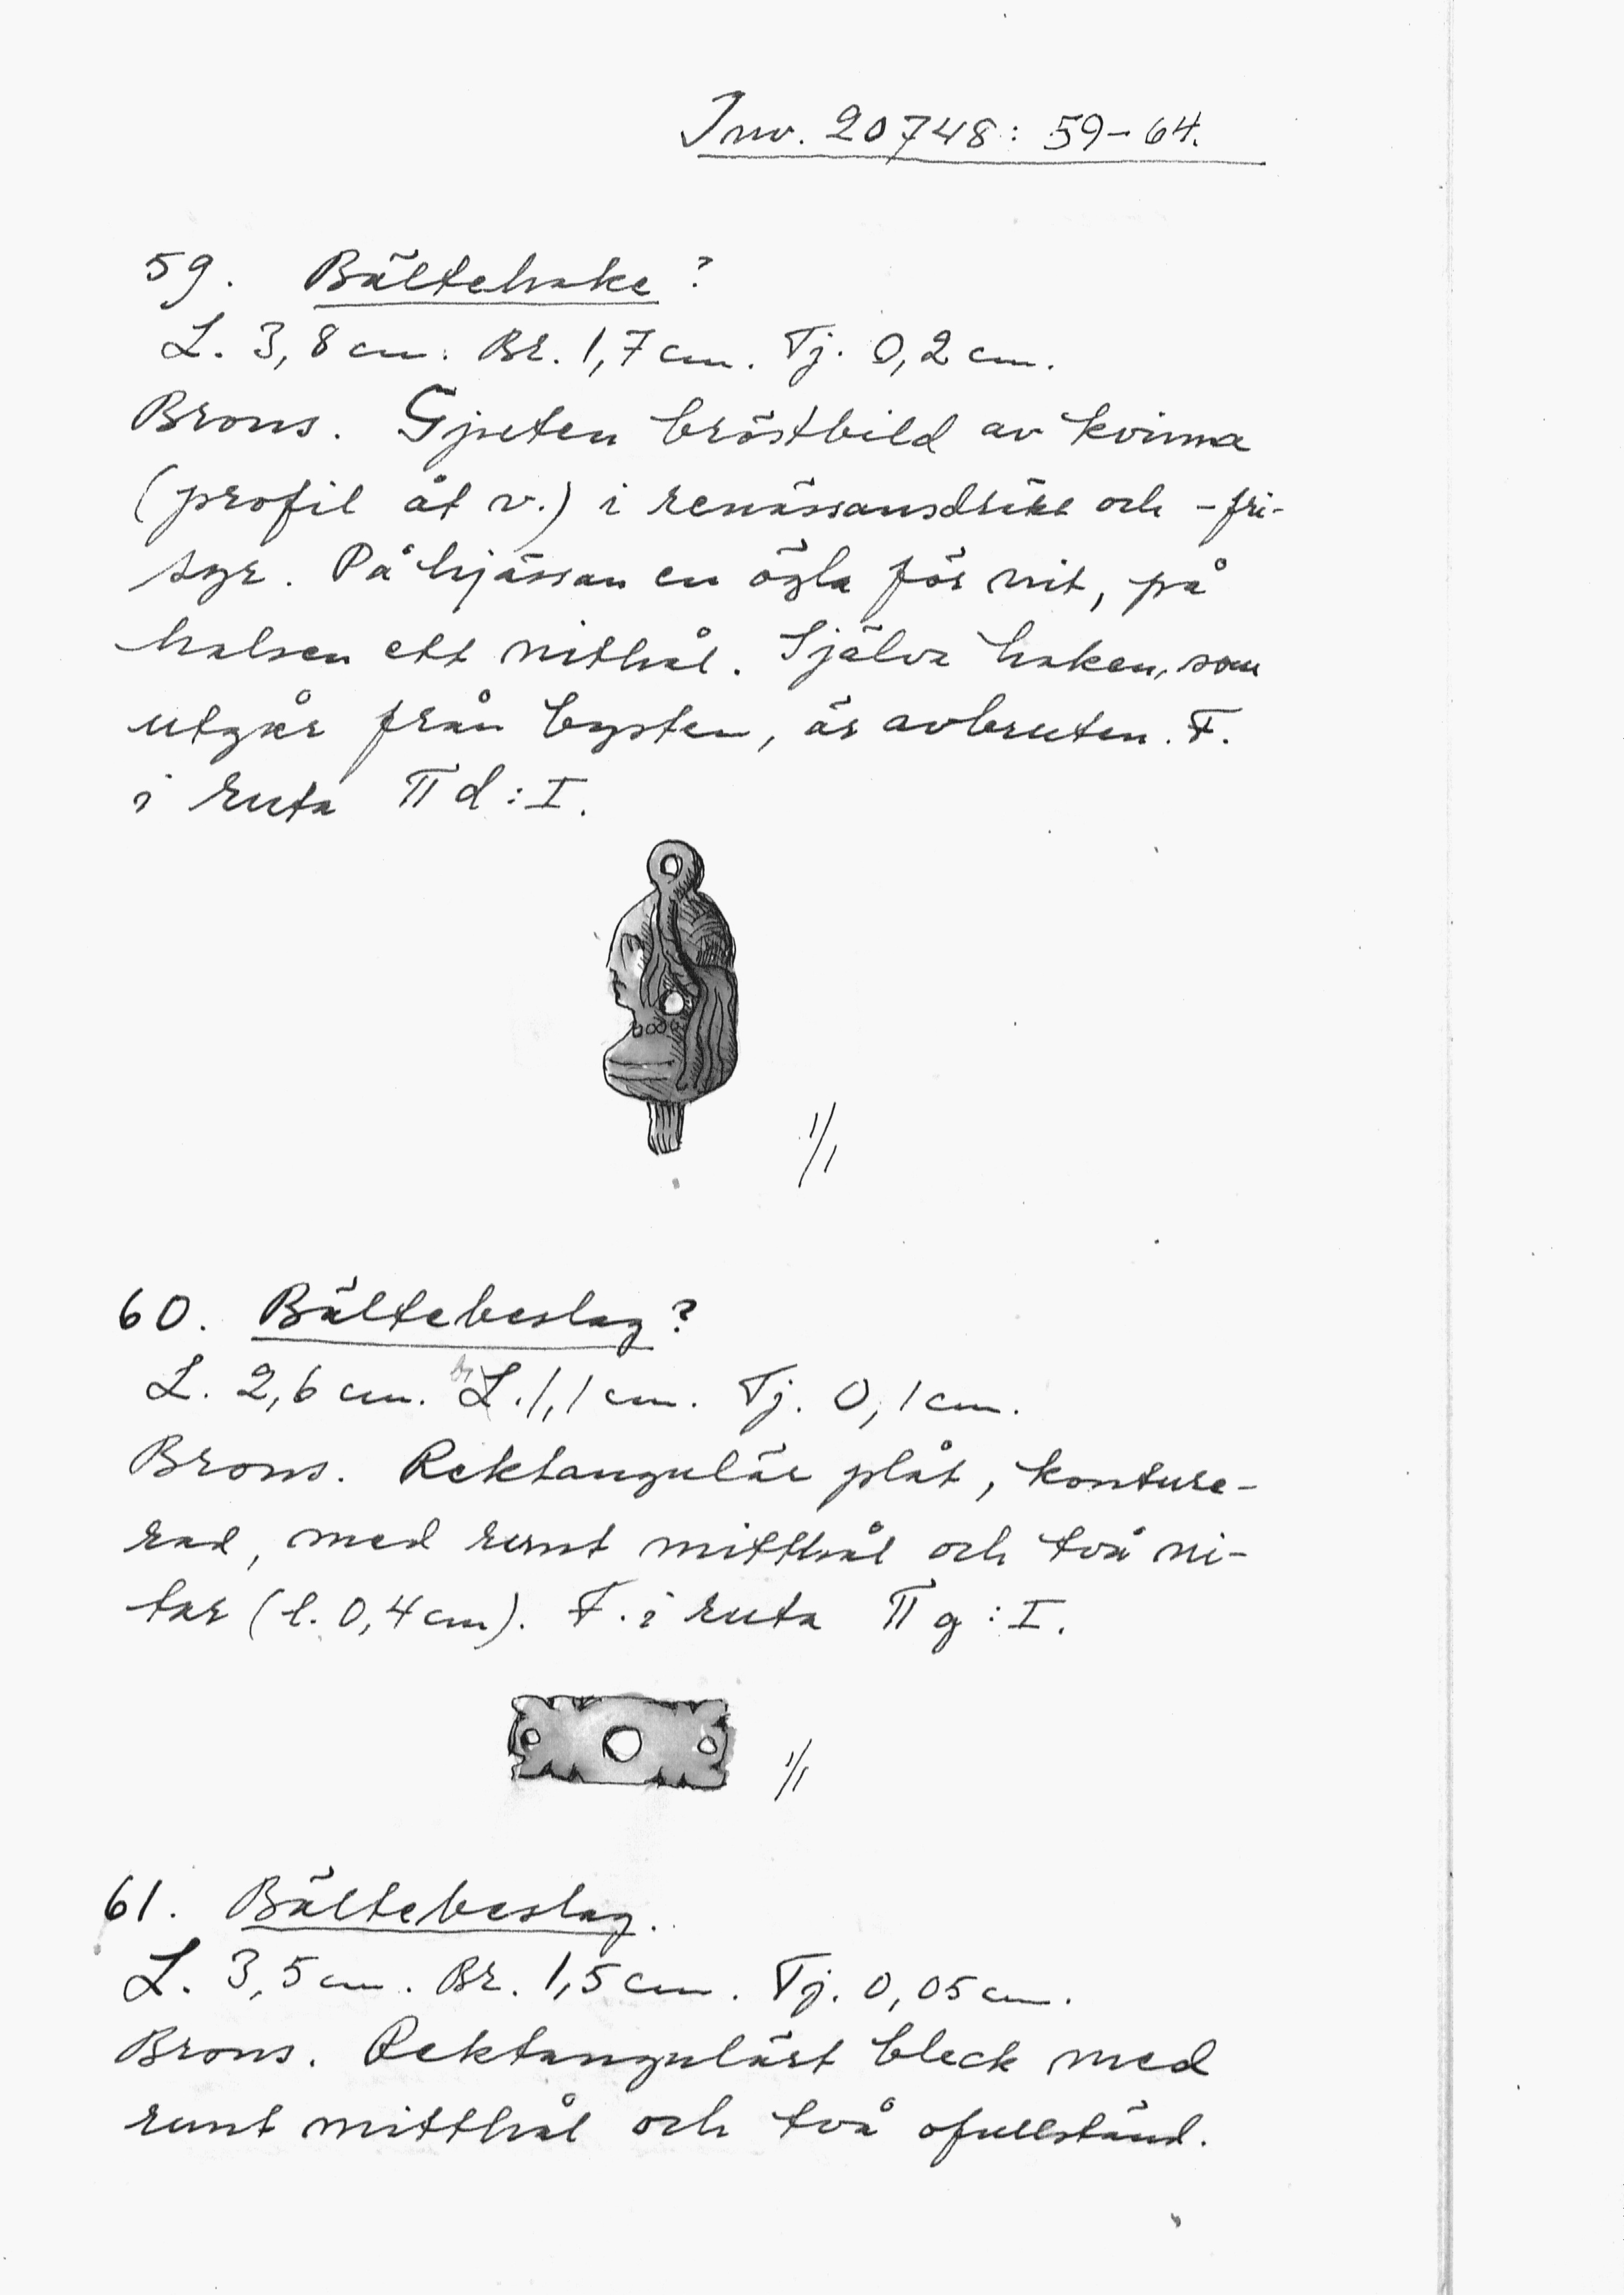 Inv. 20748: 59-64.
59. Bältehake?
L. 3,8 cm. Br. 1,7 cm. Tj. 0,2 cm.
Brons. Gjuten bröstbild av kvinna
(profil åt v.) i renässansdräkt och -fri-
syr. På hjässan en ögla för nit, på
halsen ett nithål. Själva haken, som
utgår från bysten, är avbruten. F.
i ruta II d: I.
1/1
60. Bältebeslag?
L. 2,6 cm. br L. 1,1 cm. Tj. 0,1 cm.
Brons. Rektangulär plåt, konture-
rad, med runt mitthål och två ni-
tar (l. 0,4 cm). F. i ruta II g: I.
1/1
61. Bältebeslag.
L. 3,5 cm. Br. 1,5 cm. Tj. 0,05 cm.
Brons. Rektangulärt bleck med
runt mitthål och två ofullständ.